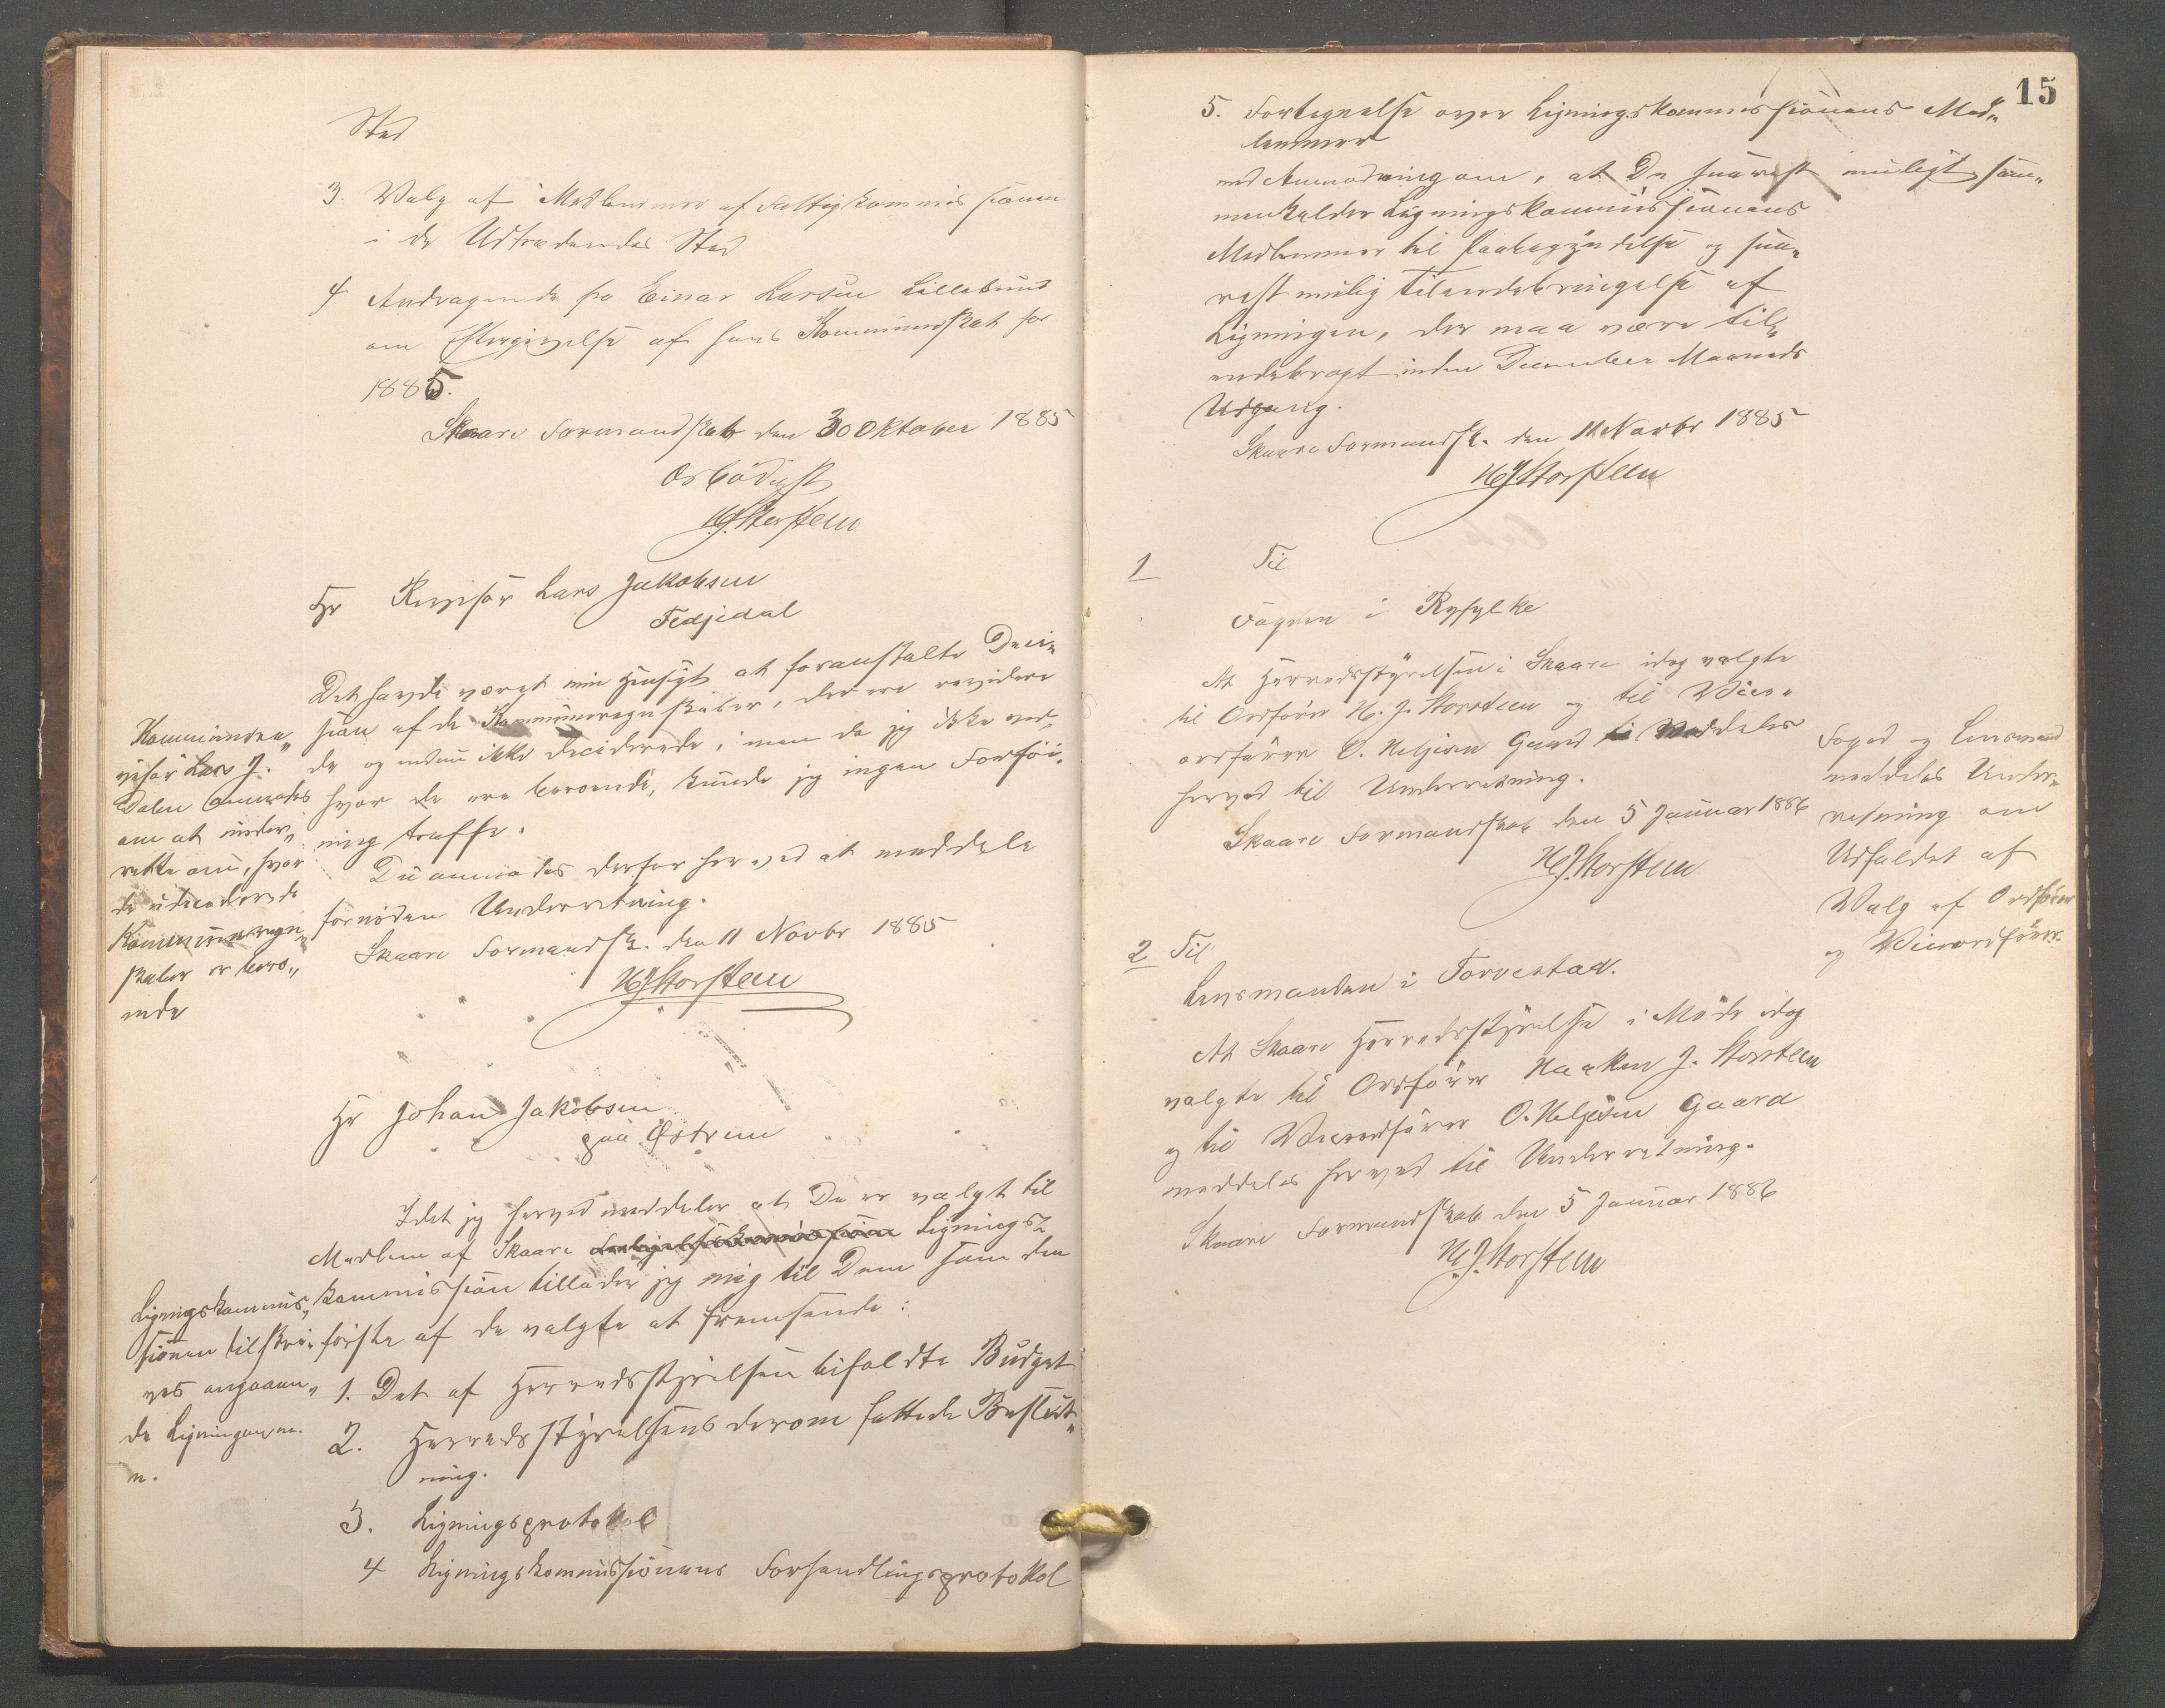 Sted
3. Valg af Medlemmer af Fattigkommissionen
i de Udtrædendes Sted
4 Andragende fra Einar Larsen Lillesund
om Eftergivelse af hans Kommuneskat for
1885.
Skaare Formandskab den 30 Oktober 1885
Ærbødigst
H J Storsteen
Hr Revisor Lars Jakobsen
Fedjedal
Det havde været min Hensigt at foranstalte Deci„
sion af de Kommuneregnskaber, der ere revidere
de og endnu ikke deciderede, men da jeg ikke ved,
hvor de ere beroende, kunde jeg ingen Forføi„
ning træffe.
De anmodes derfor herved at meddele
fornøden Underretning.
Skaare Formandsk. den 11 Novbr 1885
H J Storsteen
Kommunere„
visor Lars J.
Dalen anmodes
om at under„
rette om, hvor
de udeciderede
Kommuneregn„
skaber er bero„
ende
Hr Johan Jakobsen
paa Østrem
Idet jeg herved meddeler at De er valgt til
Medlem af Skaare Lignings„
kommission tillader jeg mig til Dem som den
første af de valgte at fremsende:
1. Det af Herredsstyrelsen bifaldte Budget
2. Herredsstyrelsens derom fattede Beslut„
ning.
3. Ligningsprotokol
4 Ligningskommissionens Forhandlingsprotokol
Ligningskommis„
sionen tilskri„
ves angaaen„
de Ligningen m.
m.
15
5. Fortegnelse over Ligningskommissionens Med„
lemmer
med Anmodning om, at De snarest muligt sam„
menkalder Ligningskommissionens
Medlemmer til Paabegyndelse og sna„
rest mulig Tilendebringelse af
Ligningen, der maa være til„
endebragt inden December Maaneds
Udgang.
Skaare Formandsk. den 11 Novbr 1885
H J Storsteen
1 Til
Fogden i Ryfylke
At Herredsstyrelsen i Skaare idag valgte
til Ordfører H. J. Storsteen og til Vice„
ordfører O. Heljesen Gaard meddeles
herved til Underretning.
Skaare Formandskab den 5 Januar 1886
H J. Storsteen
Foged og Lensmand
meddeles Under„
retning om
Udfaldet af
Valg af Ordfører
og Viceordfører.
2 Til
Lensmanden i Torvestad.
At Skaare Herredsstyrelse i Møde idag
valgte til Ordfører Haaken J. Storsteen
og til Viceordfører O. Heljesen Gaard
meddeles herved til Underretning.
Skaare Formandskab den 5 Januar 1886
H. J. Storsteen